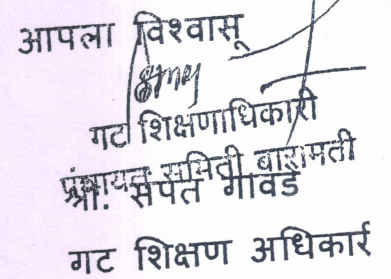 आपला विश्वासू
गट शिक्षणाधिकारी
पंचायत समिती बारामती
श्री. संपत गावडे
गट शिक्षण अधिकारी